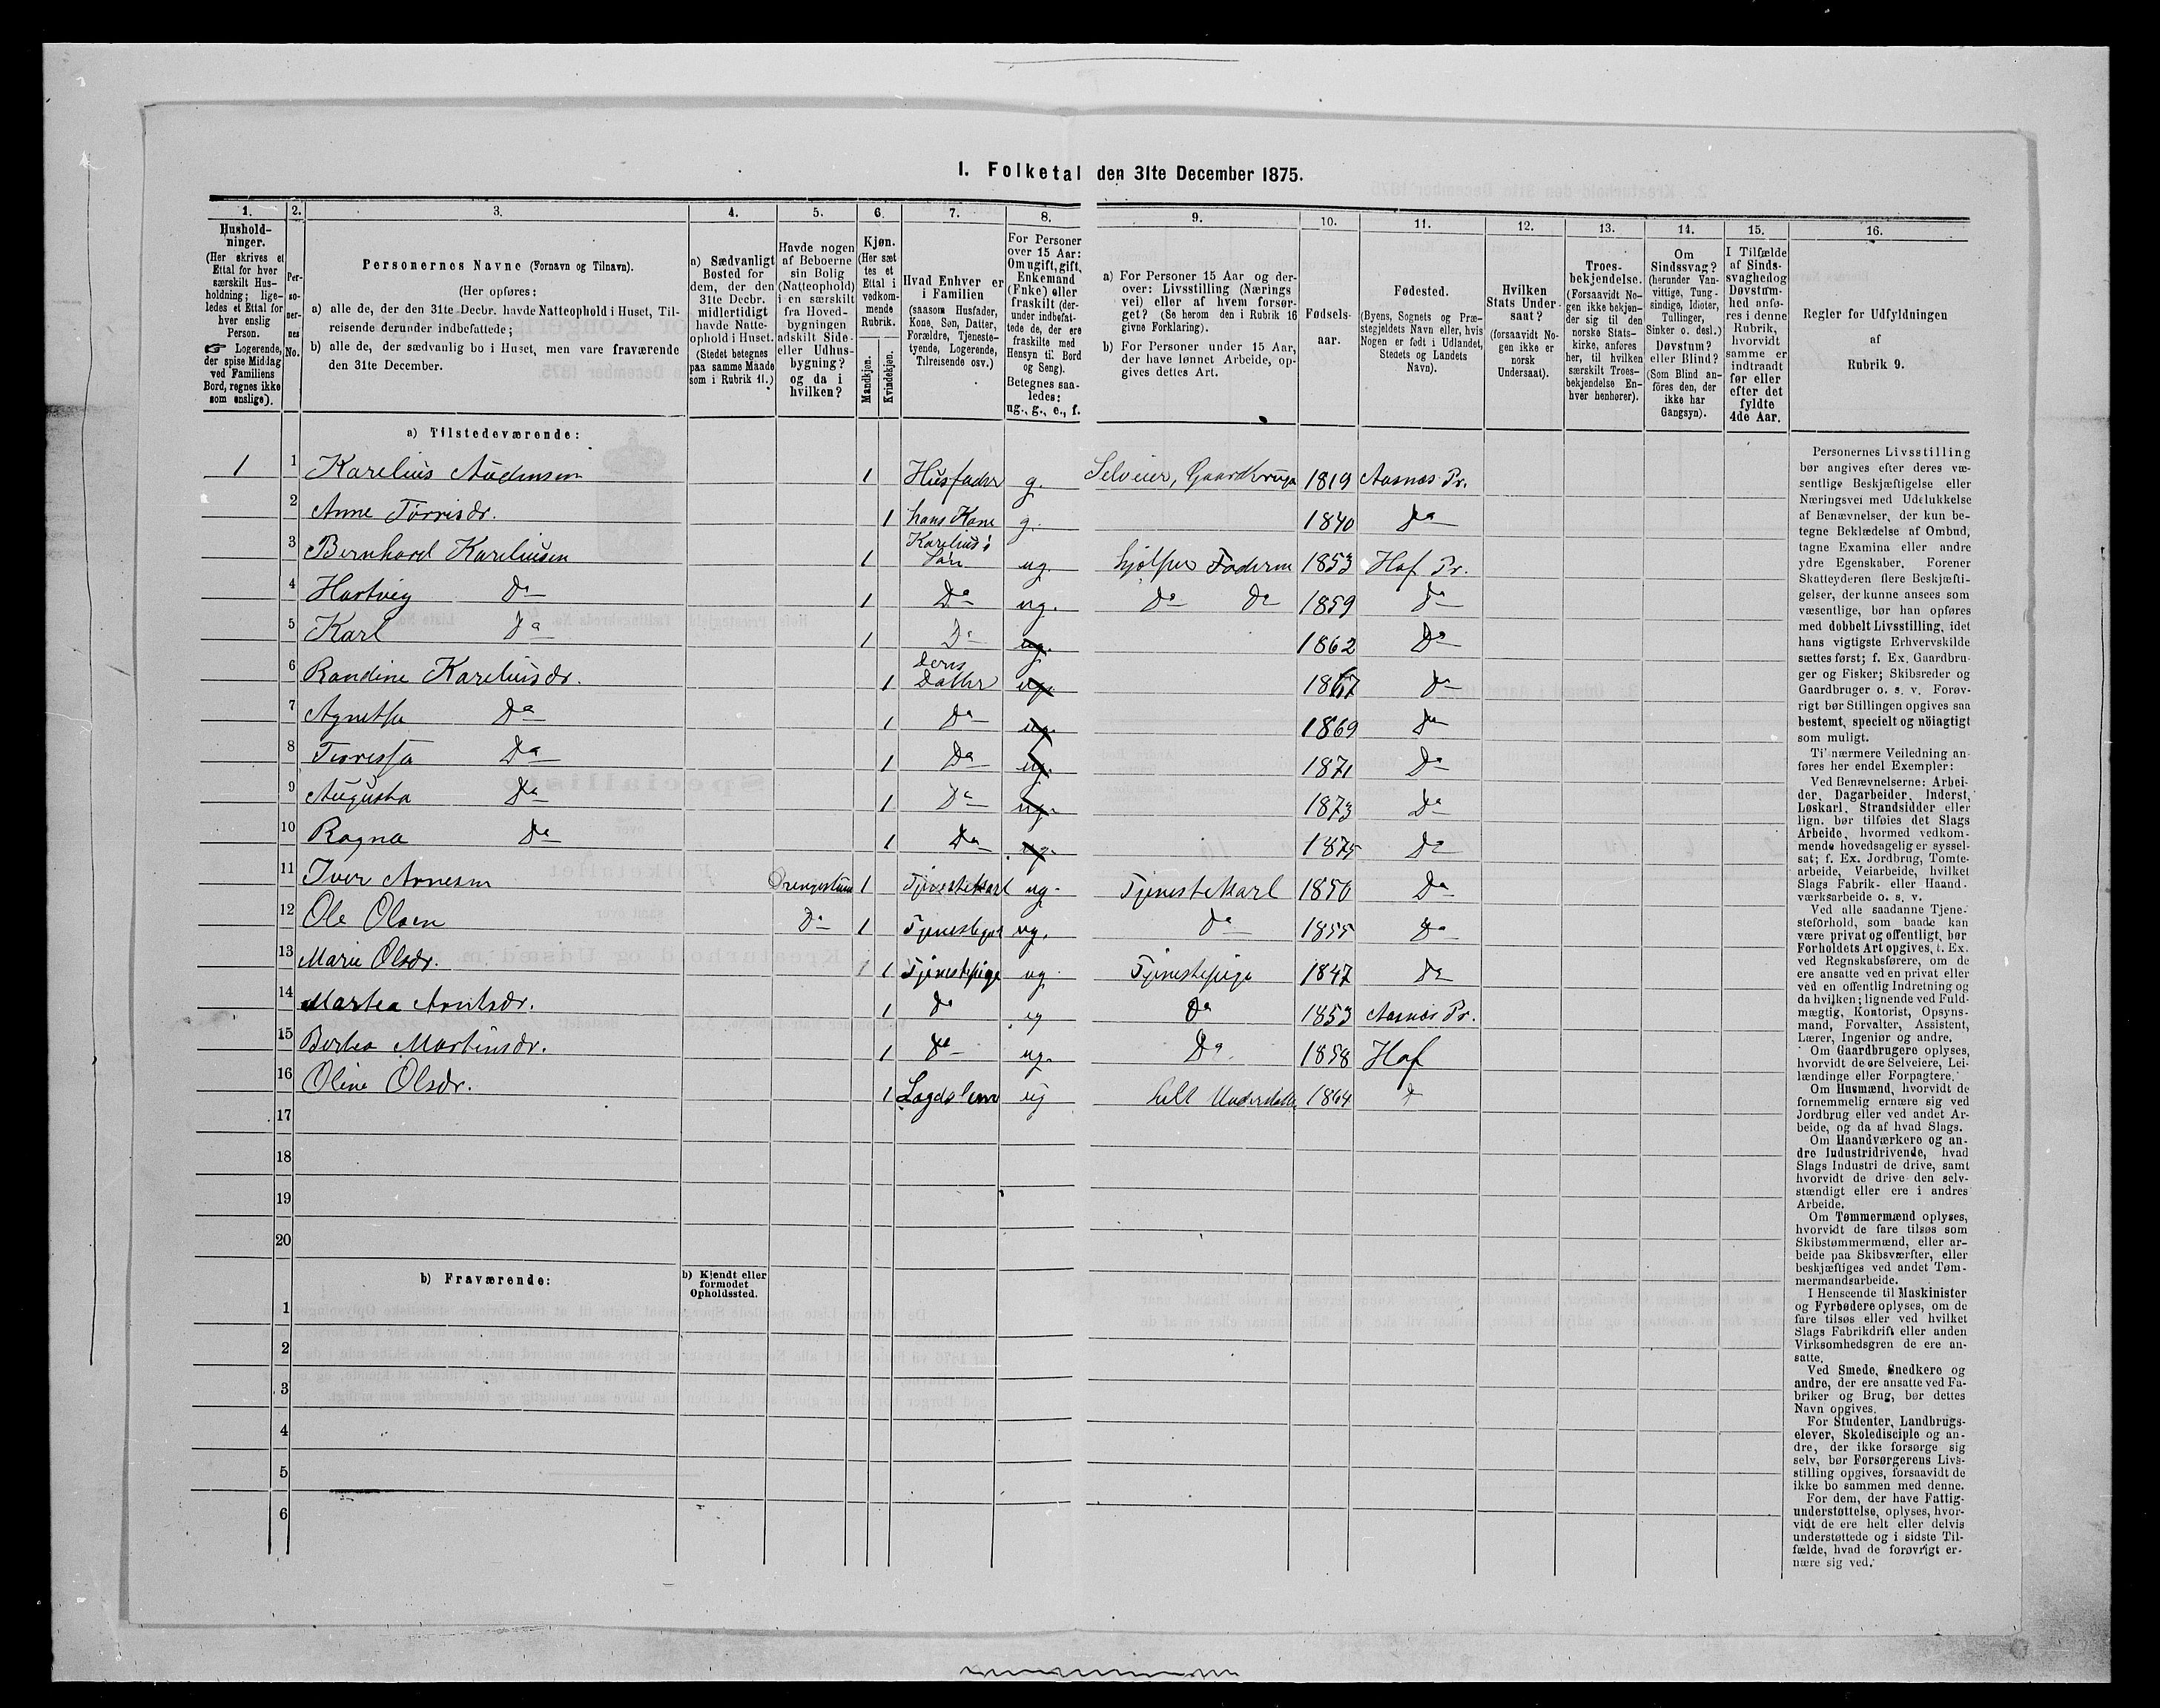 I. Folketal den 31te December 1875.
1. 2. 3. 4. 5. 6. 7. 8. 9. 10. 11. 12. 13. 14. 15. 16.
Hushold-
ninger.
(Her skrives et
Ettal for hver
særskilt Hus-
holdning; lige-
ledes et Ettal for
hver enslig
Person.
☞ Logerende,
der spise Middag
ved Familiens
Bord, regnes ikke
som enslige).
Per-
so-
ner-
nes
No.
Personernes Navne (Fornavn og Tilnavn).
(Her opføres:
a) alle de, der den 31te Decbr. havde Natteophold i Huset, Til-
reisende derunder indbefattede;
b) alle de, der sædvanlig bo i Huset, men vare fraværende
den 31te December.
a) Sædvanligt
Bosted for
dem, der den
31te Decbr.
midlertidigt
havde Natte-
ophold i Huset.
(Stedet betegnes
paa samme Maade
som i Rubrik 11.)
Havde nogen
af Beboerne
sin Bolig
(Natteophold)
i en særskilt
fra Hoved-
bygningen
adskilt Side-
eller Udhus-
bygning?
og da i
hvilken?
Kjøn.
(Her sæt
tes et
Ettal i
vedkom-
mende
Rubrik.
Mandkjøn.
Kvindekjøn.
Hvad Enhver er
i Familien
(saasom Husfader,
Kone, Søn, Datter,
Forældre, Tjeneste-
tyende, Logerende,
Tilreisende osv.)
For Personer
over 15 Aar:
Om ugift, gift,
Enkemand
(Enke) eller
fraskilt (der-
under indbefat-
tede de, der ere
fraskilte med
Hensyn til Bord
og Seng).
Betegnes saa-
ledes:
ug., g., e., f.
a) For Personer 15 Aar og der-
over: Livsstilling (Nærings
vei) eller af hvem forsør-
get? (Se herom den i Rubrik 16
givne Forklaring).
b) For Personer under 15 Aar,
der have lønnet Arbeide, op-
gives dettes Art.
Fødsels-
aar.
Fødested.
(Byens, Sognets og Præ-
stegjeldets Navn eller, hvis
Nogen er født i Udlandet,
Stedets og Landets
Navn).
Hvilken
Stats Under-
saat?
(forsaavidt No-
gen ikke er
norsk
Undersaat).
Troes-
bekjendelse.
(Forsaavidt No-
gen ikke bekjen-
der sig til den
norske Stats-
kirke, anføres
her, til hvilken
særskilt Troes-
bekjendelse En-
hver henhører).
Om
Sindssvag?
(herunder Van-
vittige, Tung-
sindige, Idioter,
Tullinger,
Sinker o. desl.)
Døvstum?
eller Blind?
(Som Blind an-
föres den, der
ikke har
Gangsyn).
I Tilfælde
af Sinds-
svaghed og
Døvstum-
hed anfø-
res i denne
Rubrik,
hvorvidt
samme er
indtraadt
før eller
efter det
fyldte
4de Aar.
Regler for Udfyldningen
af
Rubrik 9.
a) Tilstedeværende:
1 1 Karelius Audensen 1 Husfader g. Selveier, Gaardbruger 1819 Aasnes Pr.
2 Anne Torrisdr. 1 hans Kone g. 1840 Do
3 Bernhard Kareliusen 1 Karelius's Søn ug. hjælper Faderen 1853 Hof Pr.
4 Hartvig Do 1 Do ug. Do Do 1859 Do
5 Karl Do 1 Do ug. 1862 Do
6 Randine Kareliusdr. 1 deres Datter ug. 1867 Do
7 Agnethe Do 1 Do ug. 1869 Do
8 Do 1 Do ug. 1871 Do
9 Augusta Do 1 Do ug. 1873 Do
10 Ragna Do 1 Do ug. 1875 Do
11 Iver Arnesen Drengestuen 1 Tjenestekarl ug. Tjenestekarl 1850 Do
12 Ole Olsen Do 1 ug. Do 1855 Do
13 Marie Olsdr. 1 Tjenestepige ug. Tjenestepige 1847 Do
14 Marthea Arntsdr. 1 Do ug Do 1853 Aasnes Pr.
15 Berthea Martinsdr. 1 Do ug. Do 1858 Hof
16 Oline Olsdr. 1 Lægdslem ug helt 1864 D
17
18
19
20
b) Fraværende:
b) Kjendt eller
formodet
Opholdssted.
1
2
3
4
5
6
Personernes Livsstilling
bør angives efter deres væ-
sentlige Beskjæftigelse eller
Næringsvei med Udelukkelse
af Benævnelser, der kun be-
tegne Beklædelse af Ombud,
tagne Examina eller andre
ydre Egenskaber. Forener
Skatteyderen flere Beskjæfti-
gelser, der kunne ansees som
væsentlige, bør han opføres
med dobbelt Livsstilling, idet
hans vigtigste Erhvervskilde
sættes først; f. Ex. Gaardbru-
ger og Fisker; Skibsreder og
Gaardbruger o. s. v. Forøv-
rigt bør Stillingen opgives saa
bestemt, specielt og nöiagtigt
som muligt.
Til nærmere Veiledning an-
føres her endel Exempler:
Ved Benævnelserne: Arbei-
der, Dagarbeider, Inderst,
Løskarl, Strandsidder eller
lign. bør tilføies det Slags
Arbeide, hvormed vedkom-
mende hovedsagelig er syssel-
sat; f. Ex. Jordbrug, Tomte-
arbeide, Veiarbeide, hvilket
Slags Fabrik- eller Haand-
værksarbeide o. s. v.
Ved alle saadanne Tjene-
steforhold, som baade kan
være privat og offentligt, bør
Forholdets Art opgives, f. Ex.
ved Regnskabsførere, om de
ere ansatte ved en privat eller
ved en offentlig Indretning og
da hvilken; lignende ved Fuld-
mægtig, Kontorist, Opsyns-
mand, Forvalter, Assistent,
Lærer, Ingeniør og andre.
Om Gaardbrugere oplyses,
hvorvidt de ere Selveiere, Lei-
lændinge eller Forpagtere.
Om Husmænd, hvorvidt de
fornemmelig ernære sig ved
Jordbrug eller ved andet Ar-
beide, og da af hvad Slags.
Om Haandværkere og an-
dre Industridrivende, hvad
Slags Industri de drive, samt
hvorvidt de drive den selv-
stændigt eller ere i andres
Arbeide.
Om Tømmermænd oplyses,
hvorvidt de fare tilsøs som
Skibstømmermænd, eller ar-
beide paa Skibsværfter, eller
beskjæftiges ved andet Tøm-
mermandsarbeide.
I Henseende til Maskinister
og Fyrbødere oplyses, om de
fare tilsøs eller ved hvilket
Slags Fabrikdrift eller anden
Virksomhedsgren de ere an-
satte.
Ved Smede, Snedkere og
andre, der ere ansatte ved Fa-
briker og Brug, bør dettes
Navn opgives.
For Studenter, Landbrugs-
elever, Skoledisciple og an-
dre, der ikke forsørge sig
selv, bør Forsørgerens Livs-
stilling opgives, forsaavidt de
ikke bo sammen med denne.
For dem, der have Fattig-
understøttelse, oplyses, hvor-
vidt de ere helt eller delvis
understøttede og i sidste Til-
fælde, hvad de forøvrigt er-
nære sig ved.